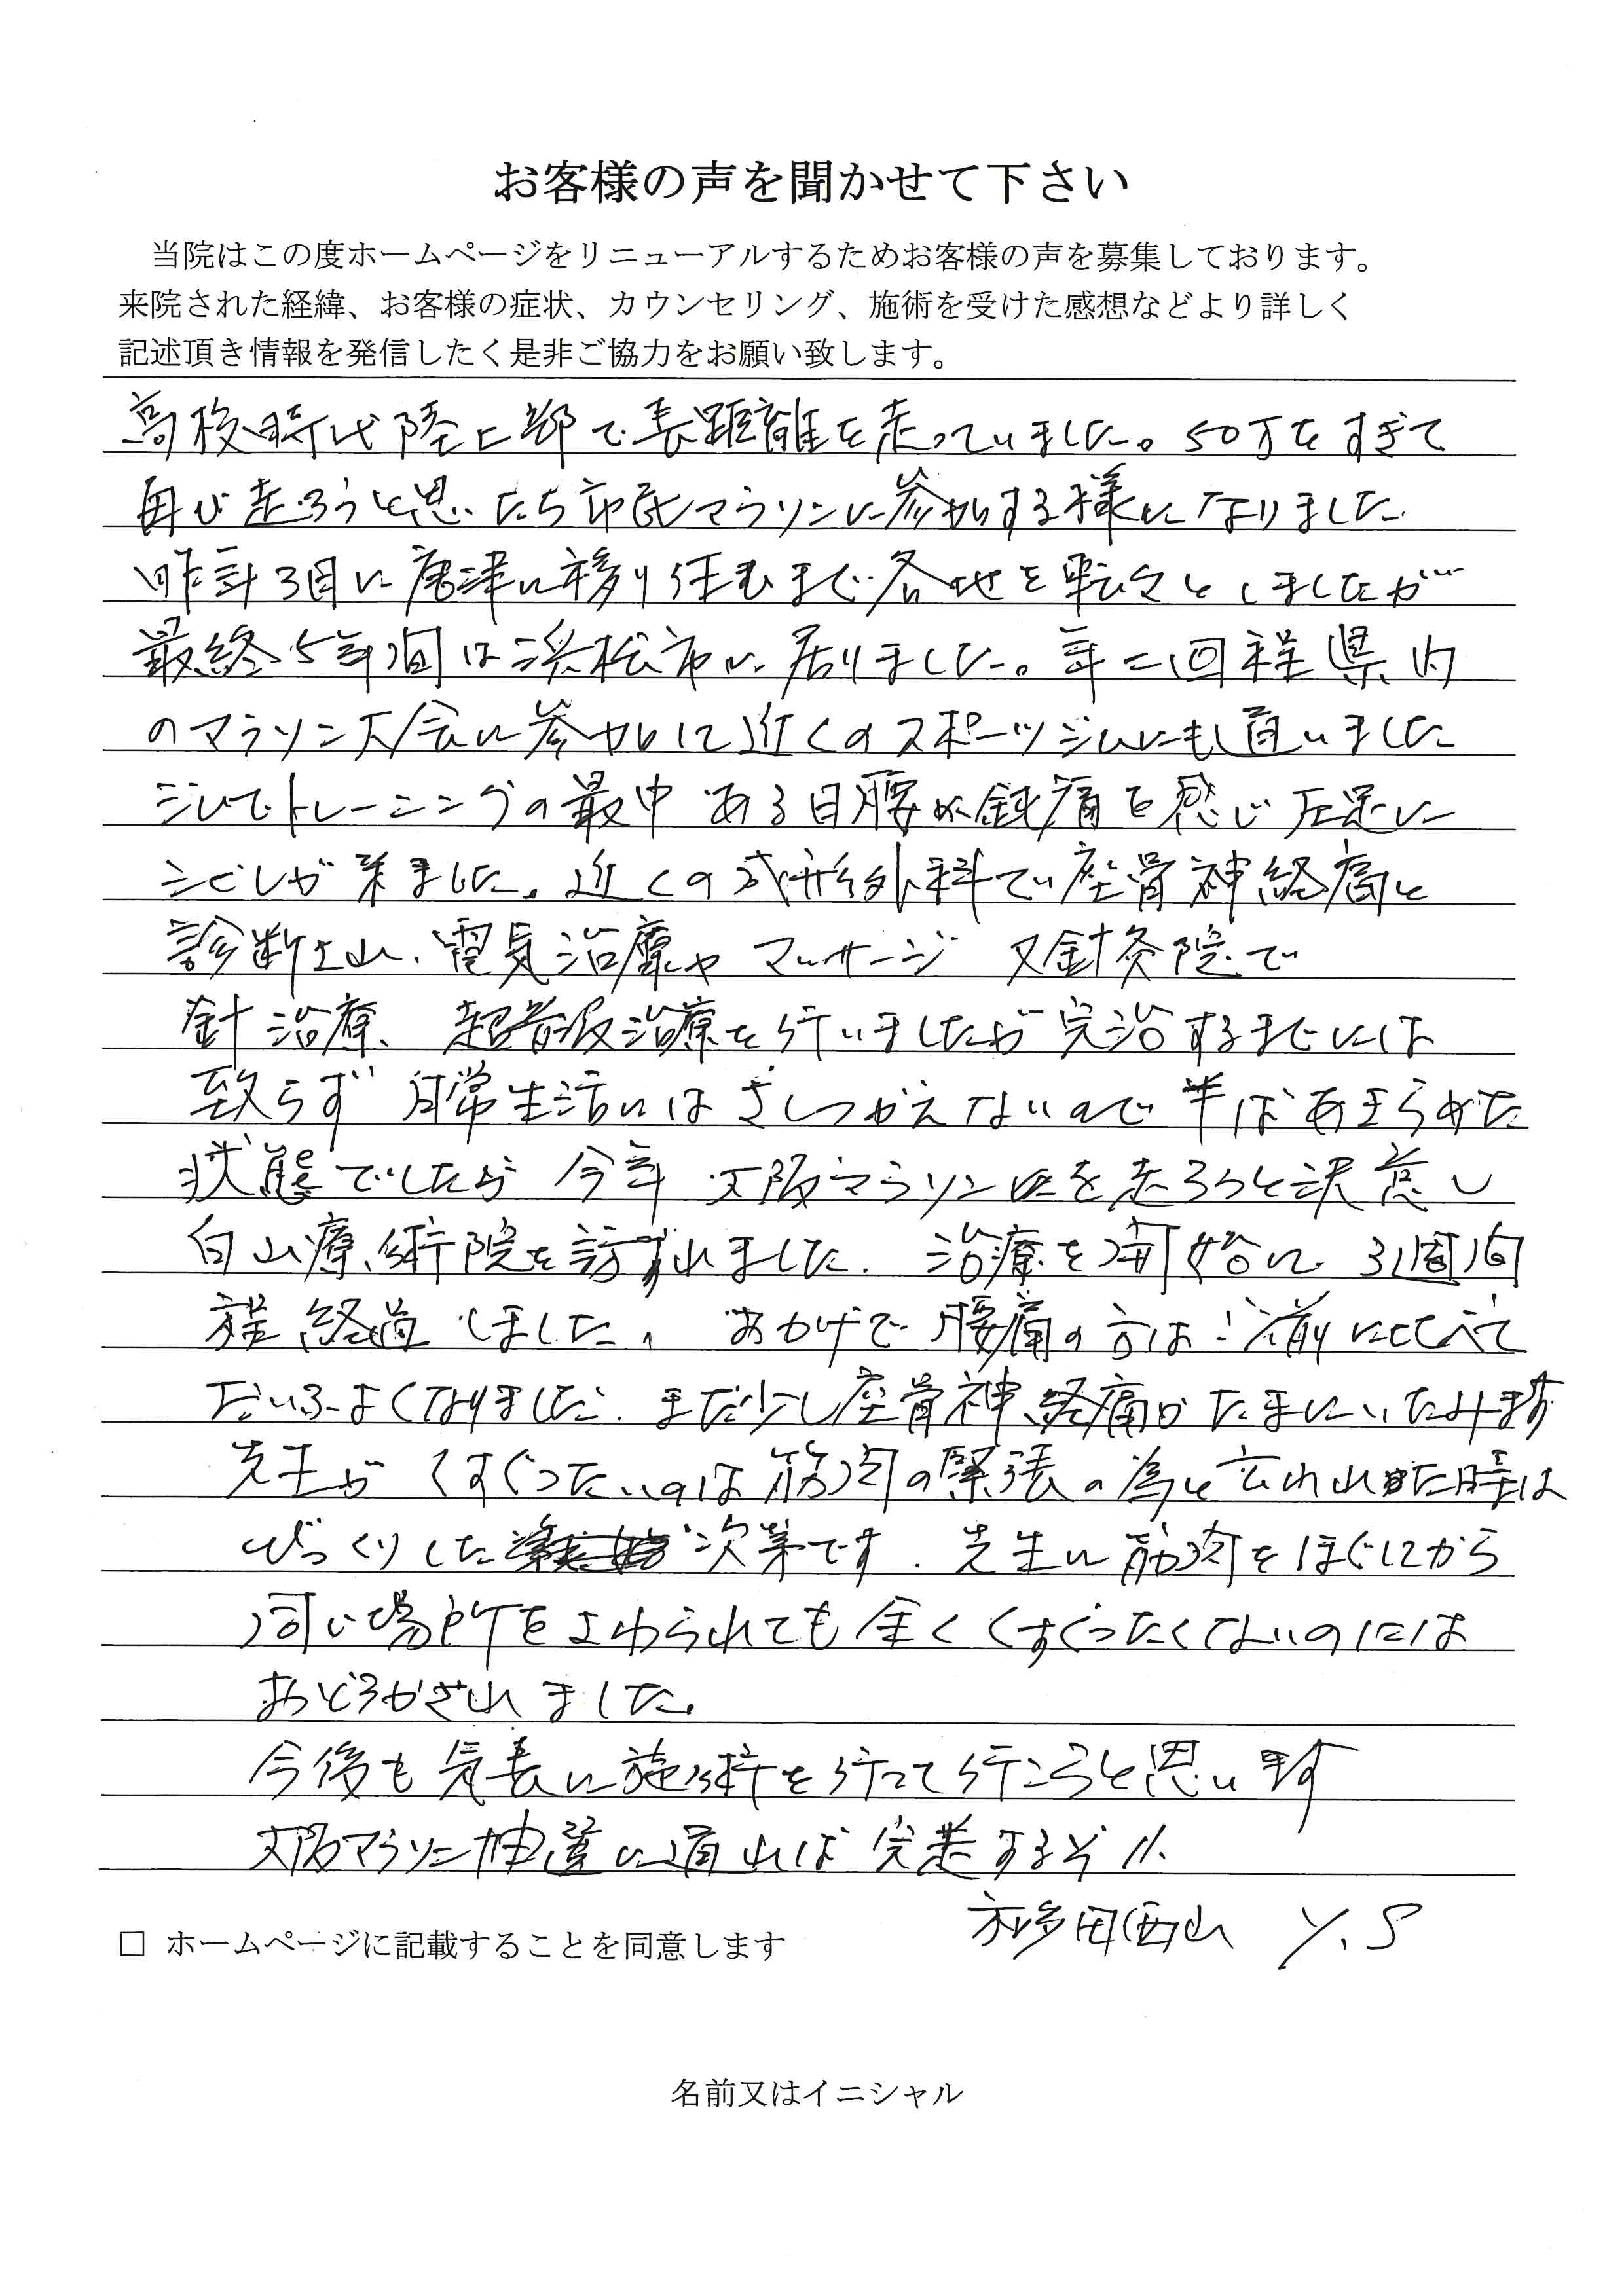 お客様の声を聞かせて下さい
当院はこの度ホームページをリニューアルするためお客様の声を募集しております。
来院された経緯、お客様の症状、カウンセリング、施術を受けた感想などより詳しく
記述頂き情報を発信したく是非ご協力をお願い致します。
高校時代陸上部で長距離を走っていました。50才をすぎて
再び走ろうと思いたち市民マラソンに参加する様になりました
昨年3月に唐津に移り住むまで各地を転々としましたが
最終5年間は浜松市に居りました。年二回程県内
のマラソン大会に参加して近くのスポーツジムにも通いました
ジムでトレーニングの最中ある日腰が鈍痛を感じ左足に
シビレが来ました。近くの整形外科で座骨神経痛と
診断され、電気治療やマッサージ 又針灸院で
針治療、超音波治療を行いましたが完治するまでには
致らず 日常生活にはさしつかえないので半ばあきらめた
状態でしたが 今年 大阪マラソンを走ろうと決意し
白山療術院を訪ずれました。治療を開始して 3週間
程経過しました。おかげで腰痛の方は以前にくらべて
だいぶよくなりました。まだ少し座骨神経痛がたまにいたみます
先生が くすぐったいのは筋肉の緊張の為と云われた時は
びっくりした次第です。先生に筋肉をほぐしてから
同じ場所をさわられても全くくすぐったくないのには
おどろかされました。
今後も気長に施術を行って行こうと思います
大阪マラソン抽選に通れば完走するぞ!!
田西山 Y.S
□ ホームページに記載することを同意します
名前又はイニシャル